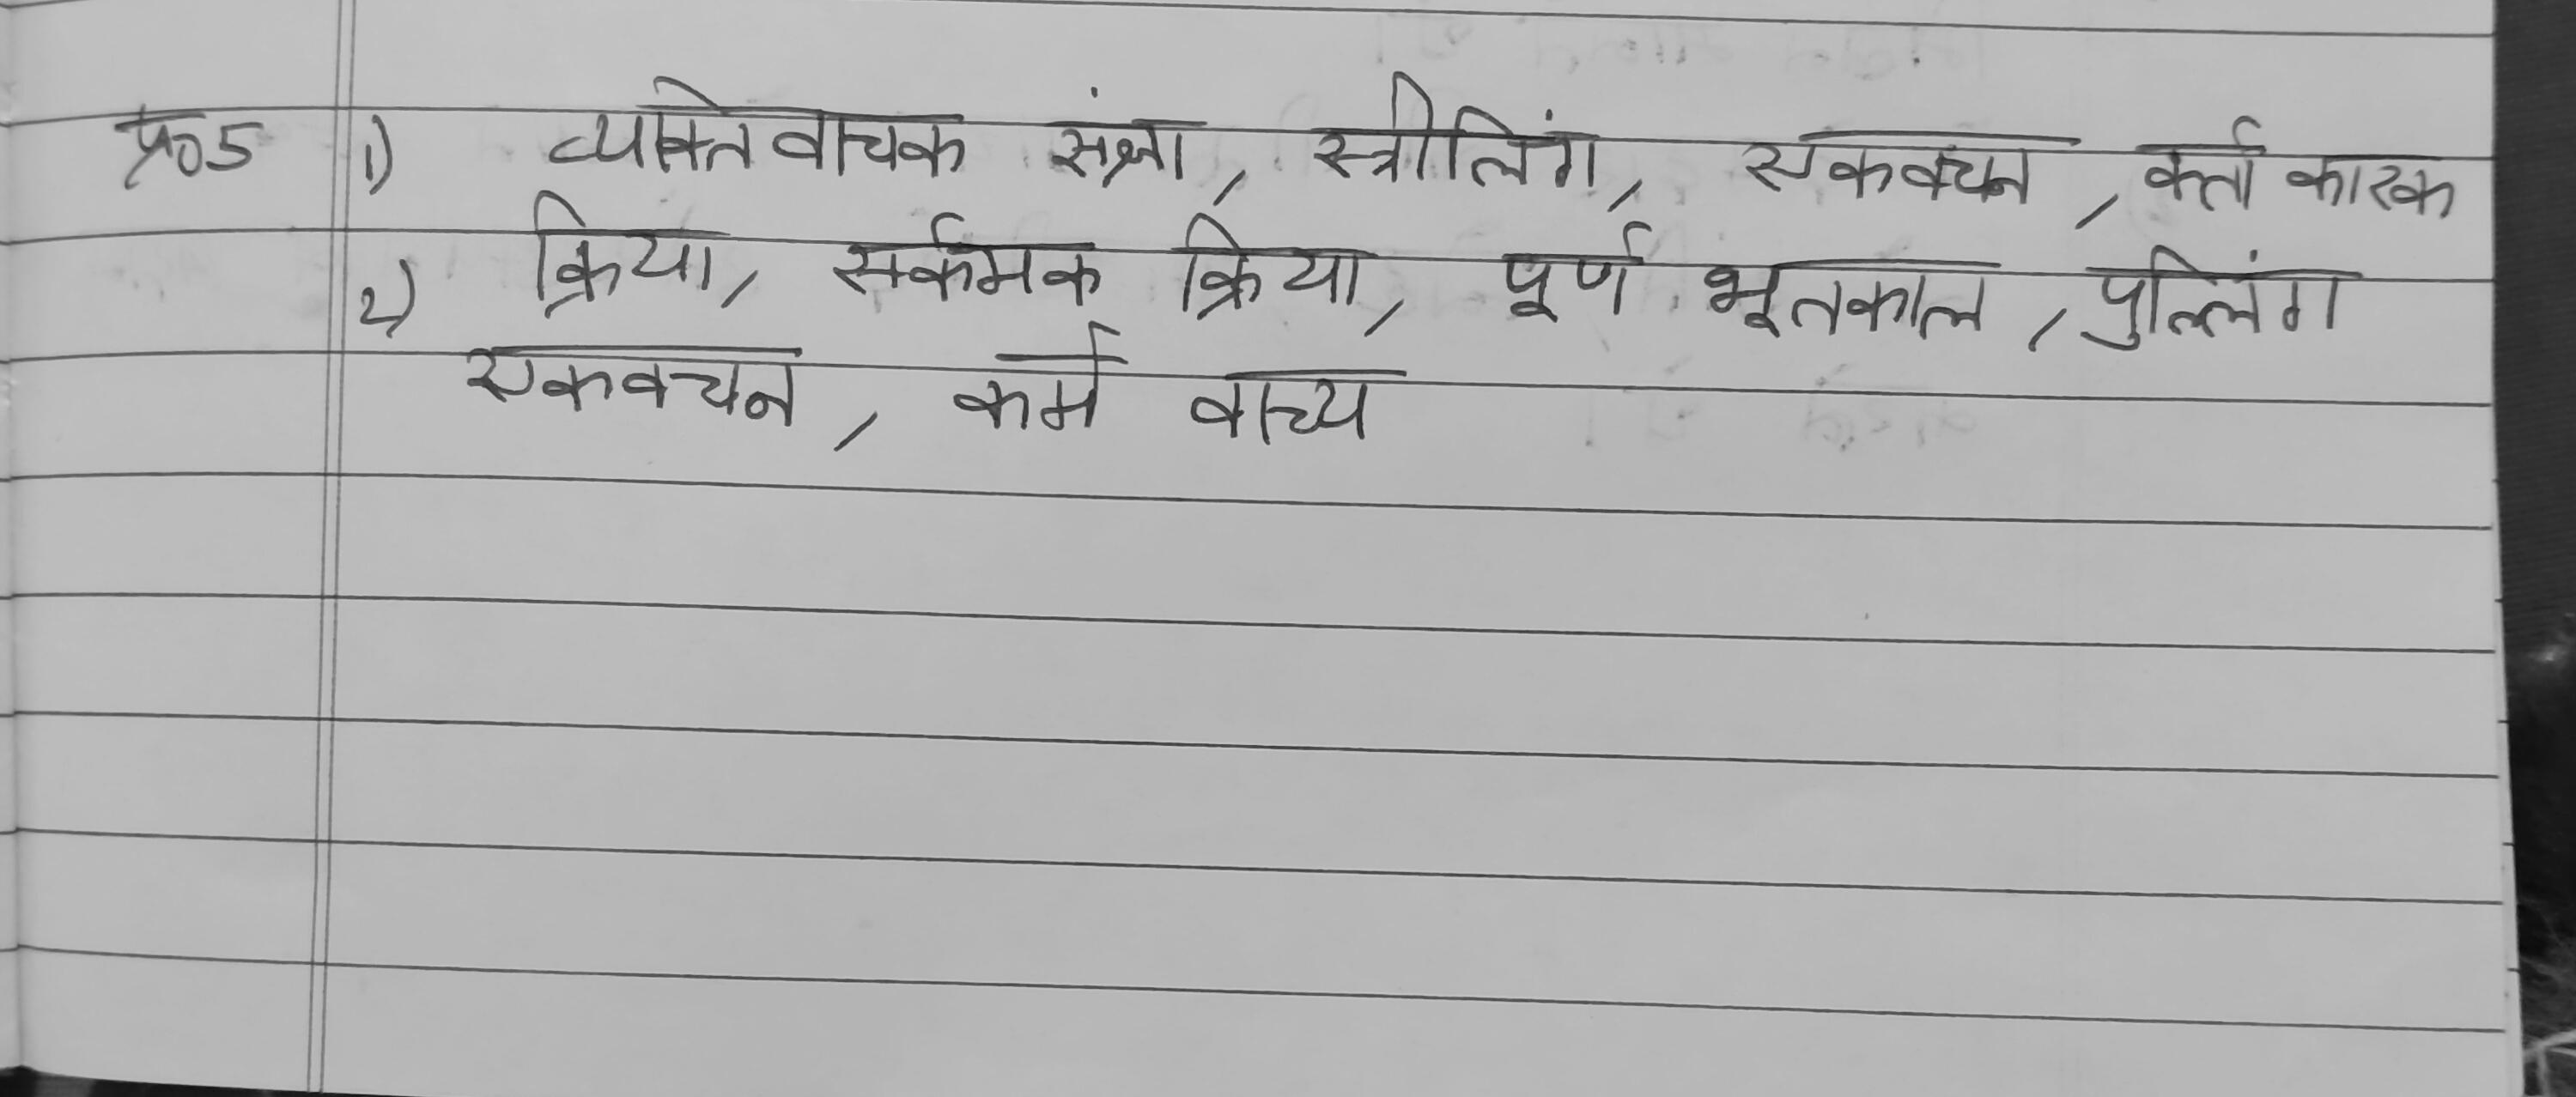 प्र०5 1) व्यक्तिवाचक संज्ञा, स्त्रीलिंग, एकवचन, कर्ता कारक
2) क्रिया, सर्कमक क्रिया, पूर्ण भूतकाल, पुल्लिंग
एकवचन, कर्म वाच्य